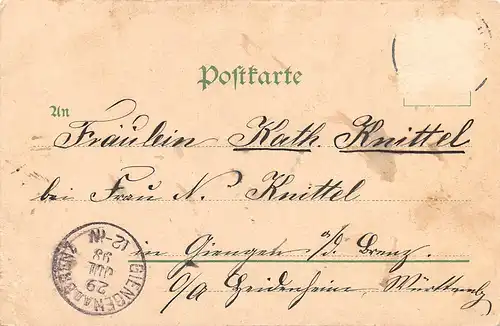 Postkarte
An
Fräulein Kath. Knittel
bei Frau N. Knittel
in Giengen a/d. Brenz.
O/A Heidenheim, Württembg
GIENGEN A.D.BRENZ
29
JUL
98
12-1N